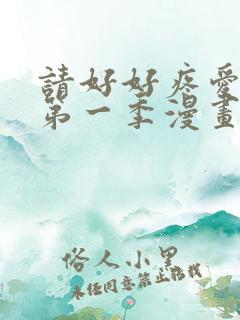 請好好疼愛
第一季漫畫
俗人小黑
未任同意禁止轉載